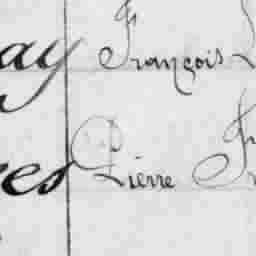 ay François
res Pierre Fr